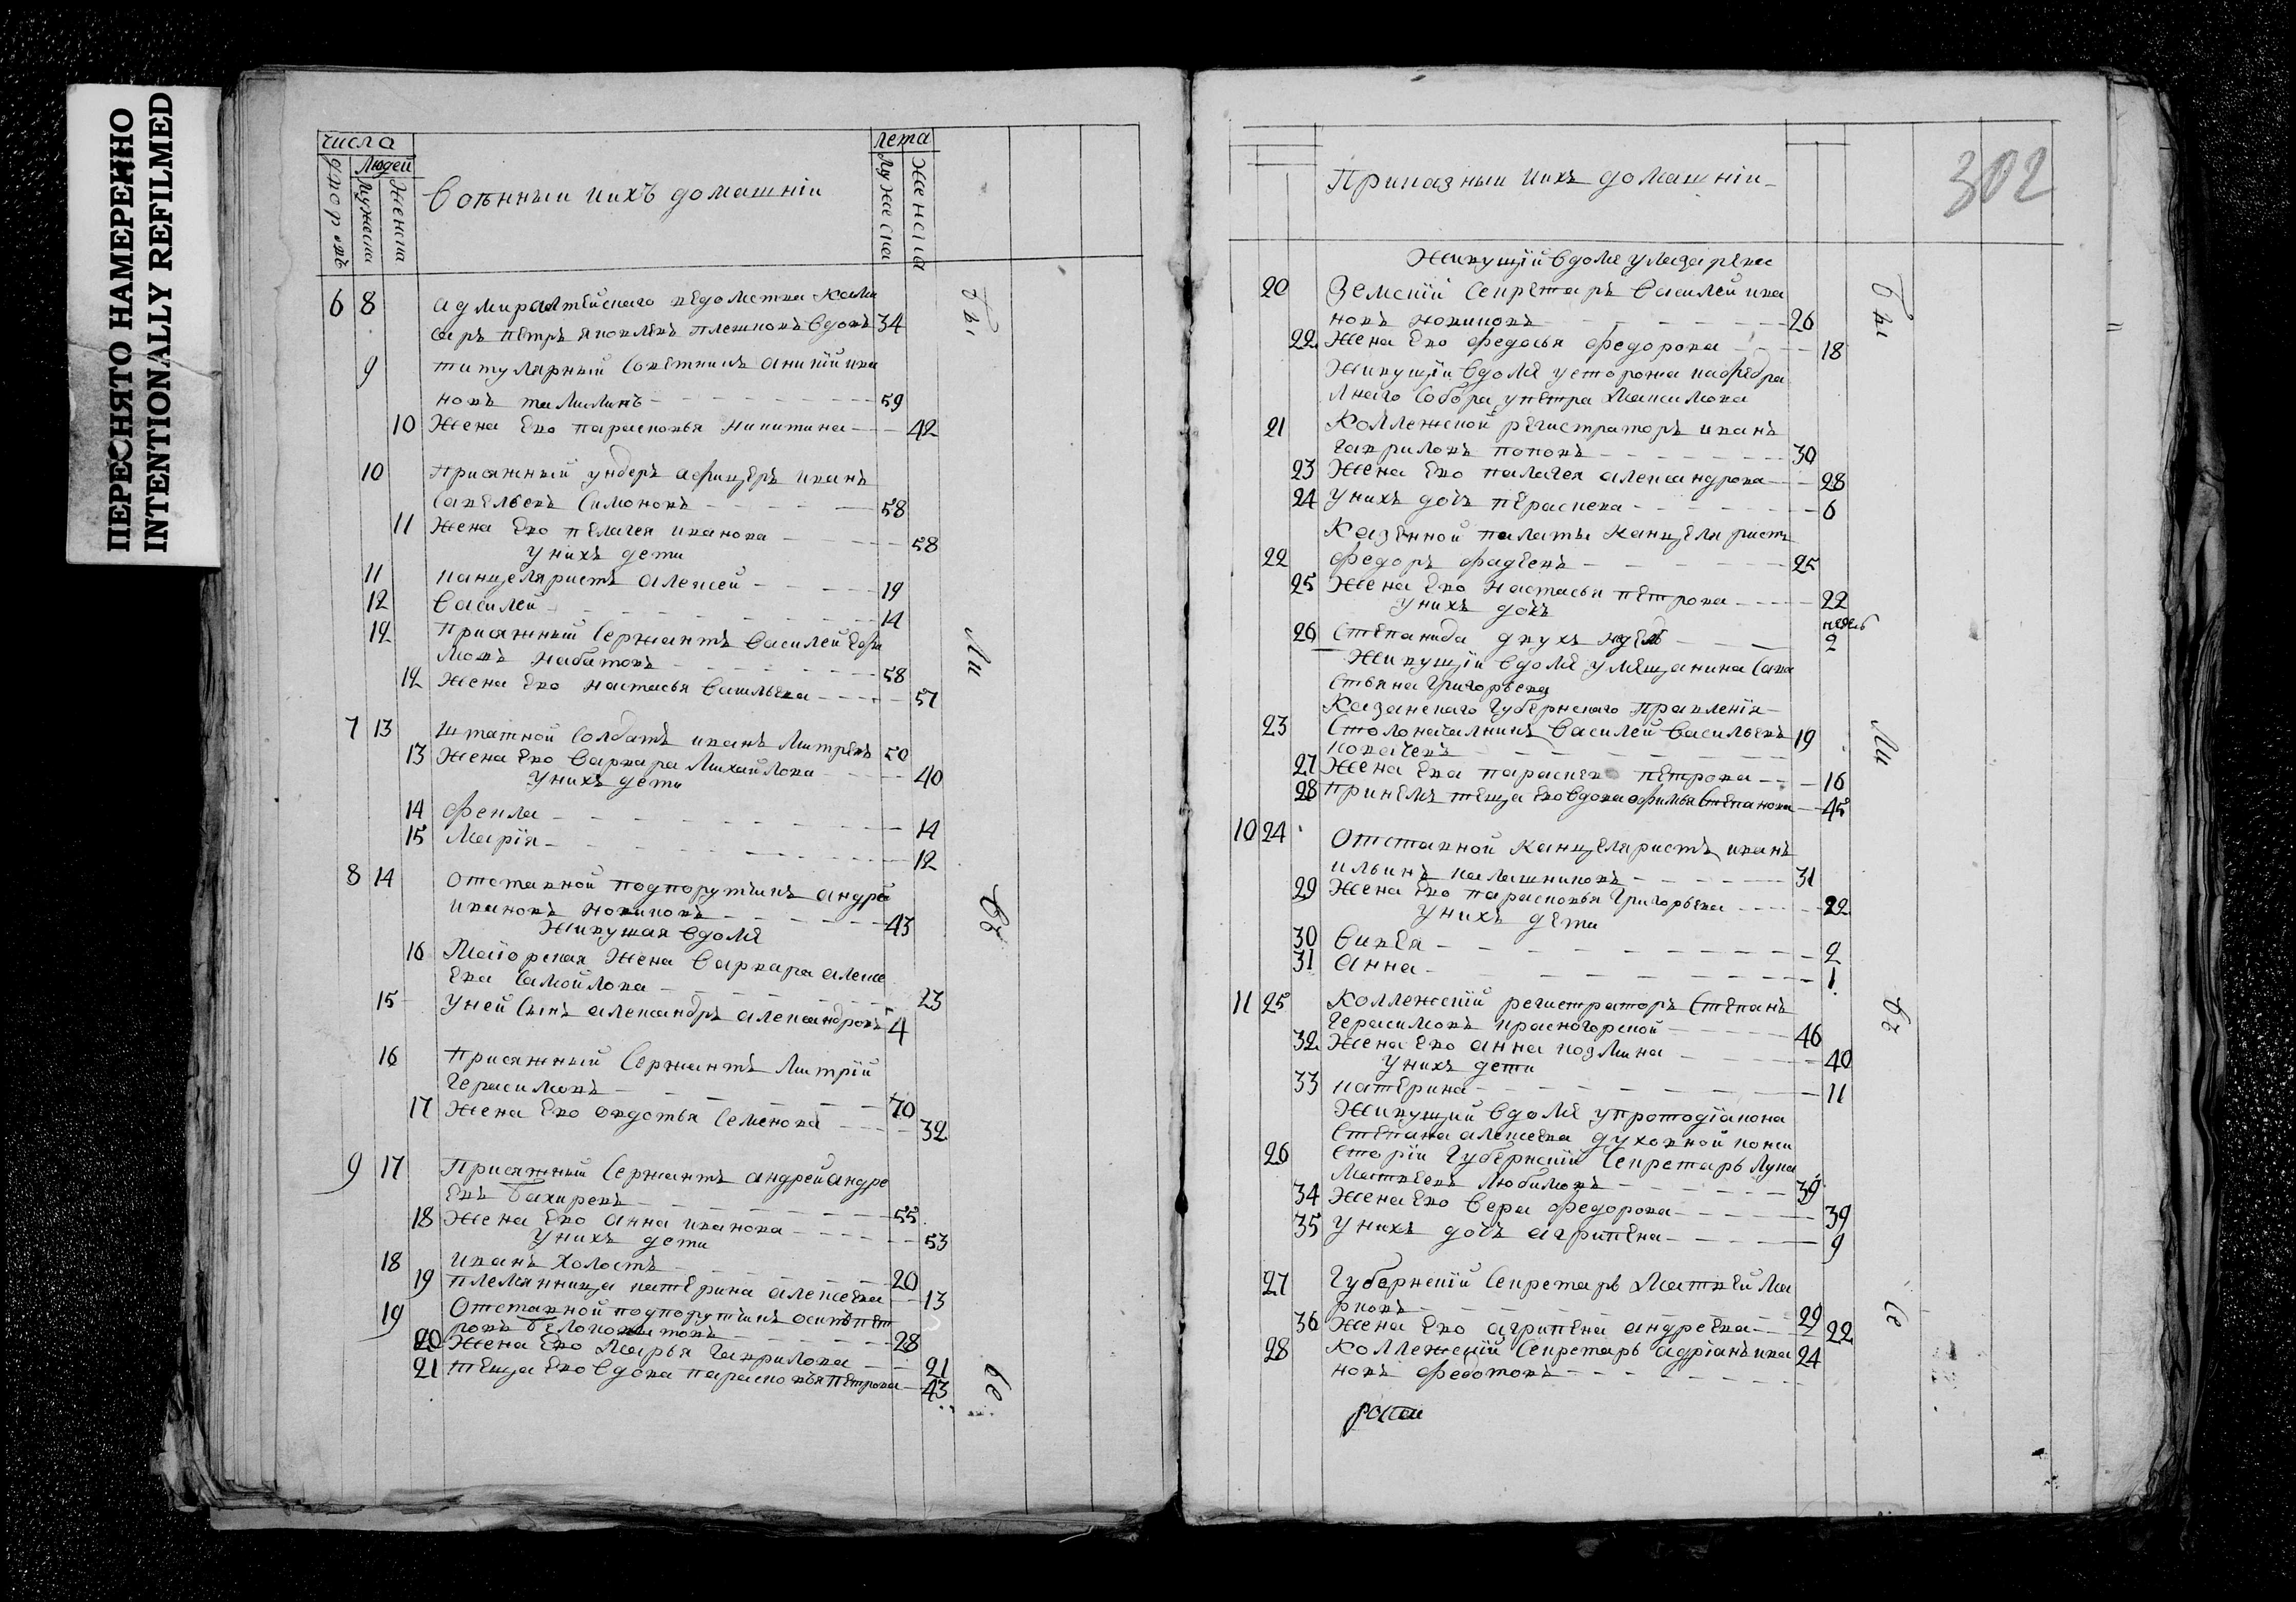 ПЕРЕСНЯТО НАМЕРЕННО
INTENTIONALLY REFILMED
числа
лета
дворовъ
людей
мужеска
женска
Воѣнныи иихъ домашнїи
мужеска
женска
6 8 адмиралтейскаго ведомства коми
саръ пѣтръ яковлевъ плешковъ вдовъ 34
9 титулярный Советникъ
новъ 59
10 Жена Ево парасковья Никитина 42
10 Присяжный ундеръ афицеръ иванъ
Савельевъ Симоновъ 58
11 Жена Ево пѣлагея иванова 58
У нихъ дети
11 канцеляристъ алексей 19
12 Василей 14
12 Присяжный Сержантъ Василей Ефи
мовъ Набатовъ 58
12 Жена Ево настасья Васильева 57
7 13 Штатной Солдатъ иванъ Митревъ 50
13 Жена Ево Варвара Михайлова 40
У нихъ дети
14 Фекла 14
15 Марїя 12
8 14 Отставной подпорутчикъ андрей
ивановъ Новиковъ 43
Живущая вдоме
16 Маїорская Жена Варвара алексе
ева Самойлова 23
15 У ней Сынъ александръ александровъ 4
16 Присяжный Сержантъ Митрїй
Герасимовъ 70
17 Жена Ево овдотья Семенова 32
9 17 Присяжный Сержантъ андрей андре
евъ Бахиревъ 55
18 Жена Ево Анна иванова 53
У нихъ дети
18 иванъ Холостъ 20
19 племянница катерина алексеева 13
19 Отставной подпорутчикъ осипъ пет
ровъ 28
20 Жена Ево Марья Гаврилова 21
21 теща Ево вдова парасковья Петрова 43
бы
ли
бѣ
бе
Приказныи иихъ домашнїи
302
Живущїи вдоме у лазарева
20 Земскїй Секретаръ Василей ива
новъ Новиковъ 26
22 Жена Ево федосья Федорова 18
Живущїи вдоме у сторожа кафедра
лнаго Собора упетра Максимова
21 Коллежской регистраторъ иванъ
Гавриловъ поповъ 30
23 Жена Ево палагея александрова 28
24 У нихъ дочь пѣраскева 6
Казенной палаты Канцеляристъ
22 федоръ фадеевъ 25
25 Жена Ево Настасья петрова 22
У нихъ дочь
недель
26 Степанида двухъ недель 2
Живущїи вдоме умещанина Сава
стьяна Григорьева
Казанскаго Губернскаго Правленїя
23 Столоначалникъ Василей Васильевъ 19
ковачевъ
27 Жена Ева параскева петрова 16
28 Принемъ теща Ево вдова афимья Степанова 45
10 24 Отставной Канцеляристъ иванъ
ильинъ калашниковъ 31
29 Жена Ево парасковья Григорьева 22
У нихъ дети
30 2
31 Анна 1
11 25 Коллежскїй регистраторъ Степанъ
Герасимовъ красногорской 46
32 Жена Ево анна козмина 40
У нихъ дети
33 катерина 11
Живущий вдоме упротодїакона
Степана алексеева духовной конси
26 сторїи Губернскїй Секретарь Лука
Матвеевъ Любимовъ 39
34 Жена Ево Вера федорова 39
35 У нихъ дочь агрипена 9
27 Губернскїй Секретарь Матвей Ма
рковъ 29
36 Жена Ево агрипена андреева 22
28 Коллежскїй Секретарь адрїанъ ива 24
новъ Федотовъ
бы
ли
бѣ
се